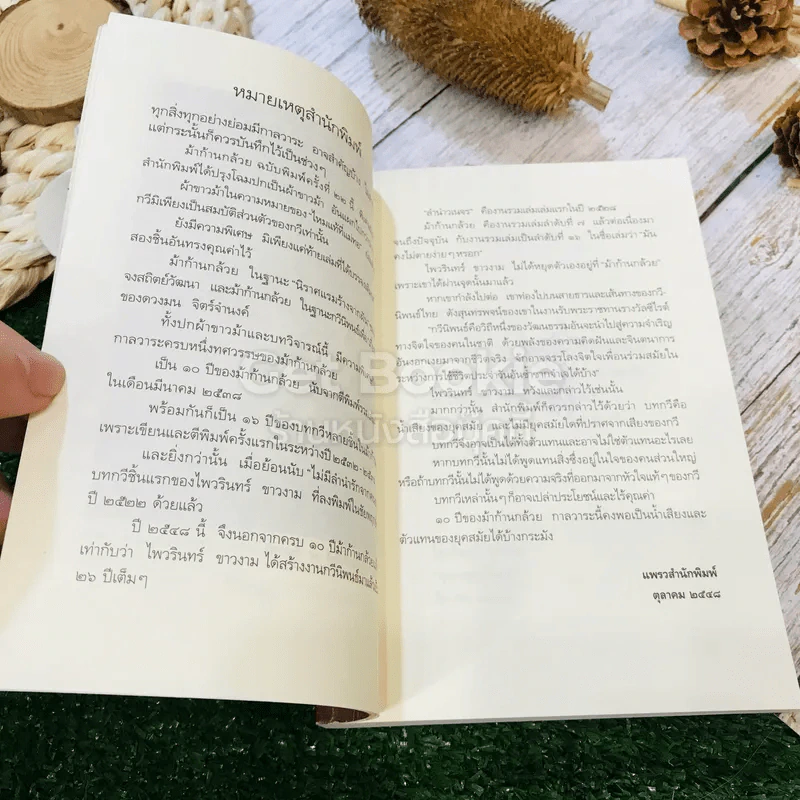 หมายเหตุสำนักพิมพ์
ทุกสิ่งทุกอย่างย่อมมีกาลวาระ อาจสำคัญบ้าง
แต่กระนั้นก็ควรบันทึกไว้เป็นช่วงๆ
ม้าก้านกล้วย ฉบับพิมพ์ครั้งที่ ๒๒ นี้
สำนักพิมพ์ได้ปรุงโฉมปกเป็นผ้าขาวม้า
ผ้าขาวม้าในความหมายของ "ไหมแท้ที่แม่ทอ"
กวีมิเพียงเป็นสมบัติส่วนตัวของกวีเท่านั้น
ยังมีความพิเศษ มิเพียงแค่ท้ายเล่มที่ได้
สองชิ้นอันทรงคุณค่าไว้
ม้าก้านกล้วย ในฐานะ "นิราศแรมร้าง
จงสถิตย์วัฒนา และม้าก้านกล้วย ในฐานะกวีนิพนธ์
ของดวงมน จิตร์จำนงค์
ทั้งปกผ้าขาวม้าและบทวิจารณ์นี้
กาลวาระครบหนึ่งทศวรรษของม้าก้านกล้วย
เป็น ๑๐ ปีของม้าก้านกล้วย นับจากตีพิมพ์
ในเดือนมีนาคม ๒๕๓๘
พร้อมกันก็เป็น ๑๖ ปีของบทกวีหลายชิ้น
เพราะเขียนและตีพิมพ์ครั้งแรกในระหว่างปี ๒๕๓๒-
และยิ่งกว่านั้น เมื่อย้อนนับ "ไม่มีลำนำรักจาก
บทกวีชิ้นแรกของไพวรินทร์ ขาวงาม ที่ลงพิมพ์ใน
ปี ๒๕๒๒ ด้วยแล้ว
ปี ๒๕๔๘ นี้ จึงนอกจากครบ ๑๐ ปีม้าก้านกล้วย
เท่ากับว่า ไพวรินทร์ ขาวงาม ได้สร้างงานกวีนิพนธ์มา
๒๖ ปีเต็มๆ
"ลำนำวเนจร" คืองานรวมเล่มเล่มแรกในปี ๒๕๒๘
ม้าก้านกล้วย คืองานรวมเล่มลำดับที่ ๗ แล้วต่อเนื่องมา
จนถึงปัจจุบัน กับงานรวมเล่มเป็นลำดับที่ ๑๖ ในชื่อเล่มว่า "มัน
คงไม่ตายง่ายๆ หรอก"
ไพวรินทร์ ขาวงาม ไม่ได้หยุดตัวเองอยู่ที่ "ม้าก้านกล้วย"
เพราะเขาได้ผ่านจุดนั้นมาแล้ว
หากเขากำลังไปต่อ เขาท่องไปบนสายธารและเส้นทางของกวี
นิพนธ์ไทย ดังสุนทรพจน์ของเขาในงานรับพระราชทานรางวัลซีไรต์
"กวีนิพนธ์คือวิถีหนึ่งของวัฒนธรรมอันจะนำไปสู่ความจำเริญ
ทางจิตใจของคนในชาติ ด้วยพลังของความคิดฝันและจินตนาการ
อันงอกเงยมาจากชีวิตจริง จักอาจจรรโลงจิตใจเพื่อนร่วมสมัยใน
ระหว่างการใช้ชีวิตประจำวันอันซ้ำซากจำเจได้บ้าง"
ไพวรินทร์ ขาวงาม หวังและกล่าวไว้เช่นนั้น
มากกว่านั้น สำนักพิมพ์ก็ควรกล่าวไว้ด้วยว่า บทกวีคือ
น้ำเสียงของยุคสมัย และไม่มียุคสมัยใดที่ปราศจากเสียงของกวี
บทกวีจึงอาจเป็นได้ทั้งตัวแทนและอาจไม่ใช่ตัวแทนอะไรเลย
หากบทกวีนั้นไม่ได้พูดแทนสิ่งซึ่งอยู่ในใจของคนส่วนใหญ่
หรือถ้าบทกวีนั้นไม่ได้พูดด้วยความจริงที่ออกมาจากหัวใจแท้ๆ ของกวี
บทกวีเหล่านั้นๆ ก็อาจเปล่าประโยชน์และไร้คุณค่า
๑๐ ปีของม้าก้านกล้วย กาลวาระนี้คงพอเป็นน้ำเสียงและ
ตัวแทนของยุคสมัยได้บ้างกระมัง
แพรวสำนักพิมพ์
ตุลาคม ๒๕๔๘
Get Bookie
ร้านหนังสือบุ๊คกี้